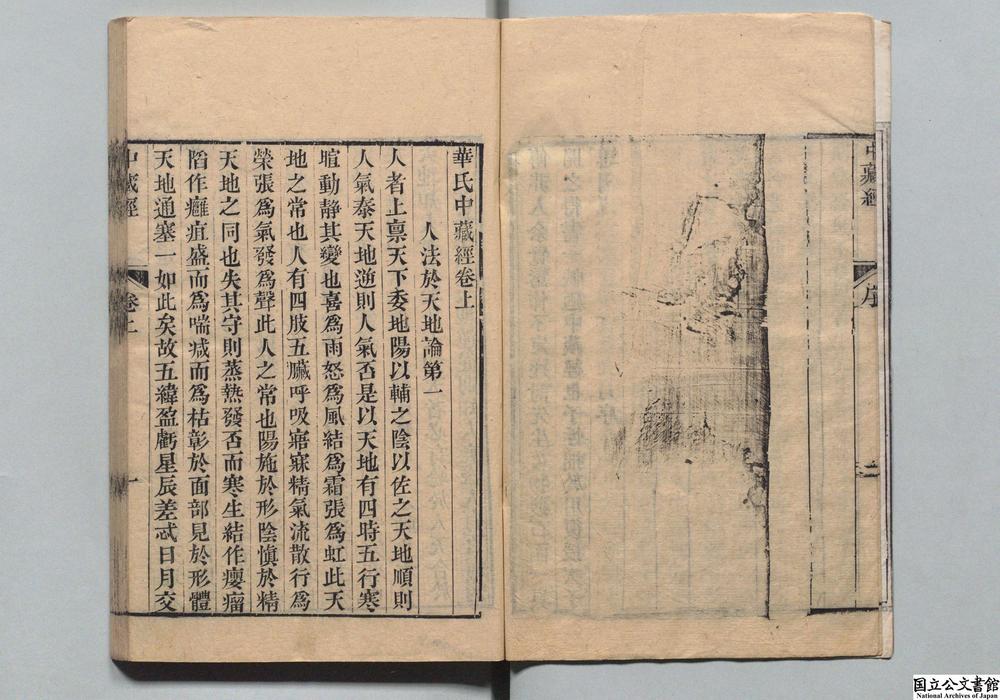 中藏經
序
二
華氏中藏經卷上
人法於天地論第一
人者上禀天下委地陽以輔之陰以佐之天地順則
人氣泰天地逆則人氣否是以天地有四時五行寒
暄動靜其變也喜爲雨怒爲風結爲霜張爲虹此天
地之常也人有四肢五臟呼吸寤寐精氣流散行爲
榮張爲氣發爲聲此人之常也陽施於形陰慎於精
天地之同也失其守則蒸熱發否而寒生結作癭瘤
陷作癰疽盛而爲喘減而爲枯彰於面部見於形體
天地通塞一如此矣故五緯盈虧星辰差忒日月交
中藏經
卷上
一
国立公文書館
National Archives of Japan